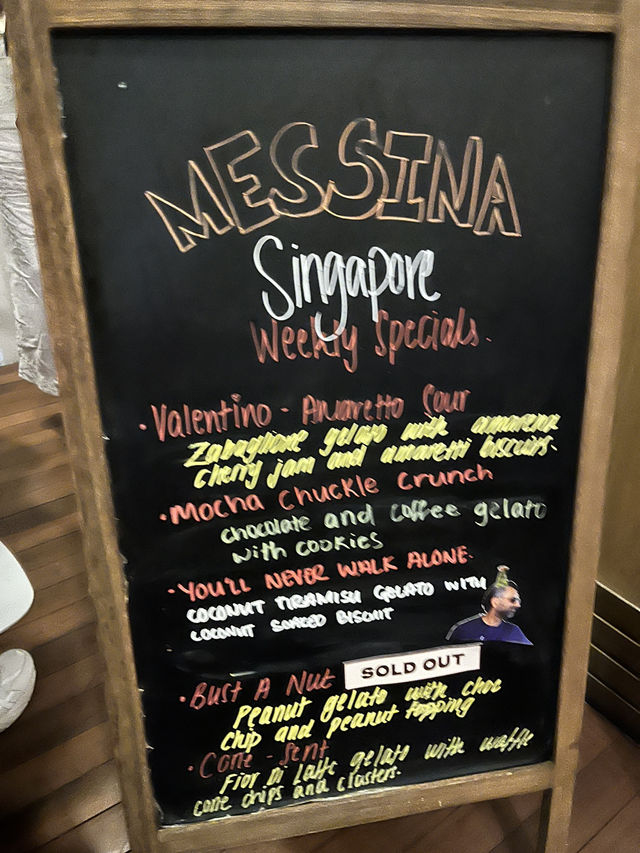 MESSINA
Singapore
Weekly Specials.
• Valentino - Amaretto Sour
Zabaglione gelato with amarena
cherry jam and amaretti biscuits.
• Mocha Chuckle Crunch
chocolate and coffee gelato
with cookies
• YOU'LL NEVER WALK ALONE.
COCONUT TIRAMISU GELATO WITH
COCONUT SOAKED BISCUIT
• Bust A Nut SOLD OUT
Peanut gelato with choc
chip and peanut topping
• Cone - Sent
Fior Di Latte gelato with waffle
cone chips and clusters.